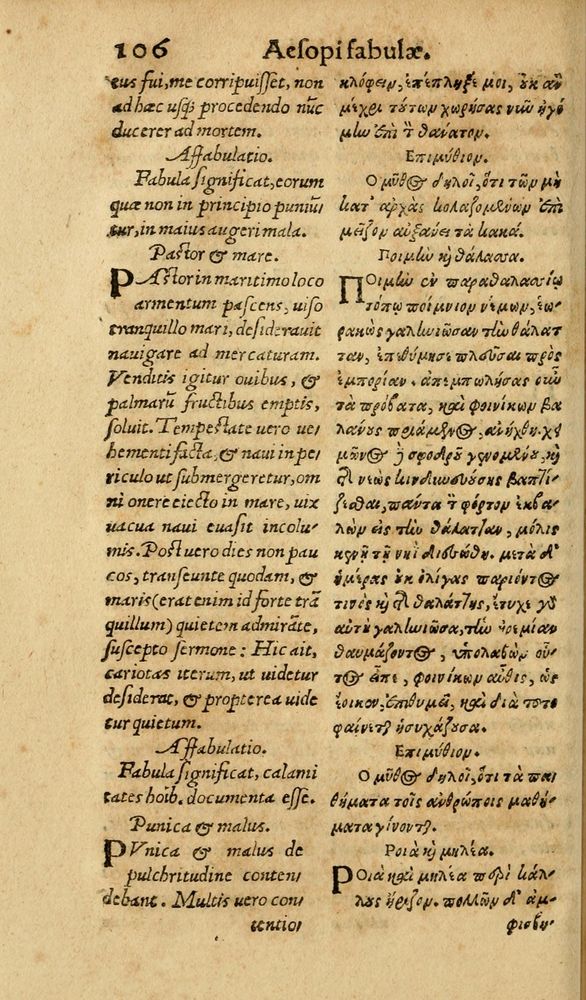 106 Aesopi fabulæ.
eus fui, me corripuisset, non
ad hæc usq; procedendo nūc
ducerer ad mortem.
Affabulatio.
Fabula significat, eorum
quæ non in principio puniūt
tur, in maius augeri mala.
Pastor & mare.
PAstor in maritimo loco
armentum pascens, uiso
tranquillo mari, desiderauit
nauigare ad mercaturam.
Venditis igitur ouibus, &
palmarū fructibus emptis,
soluit. Tempestate uero ue/
hementi facta, & naui in pe/
riculo ut submergeretur, om
ni onere eiecto in mare, uix
uacua naui euasit incolu/
mis. Post uero dies non pau
cos, transeunte quodam, &
maris (erat enim id forte trā
quillum) quietem admirāte,
suscepto sermone: Hic ait,
cariotas iterum, ut uidetur
desiderat, & propterea uide
tur quietum.
Affabulatio.
Fabula significat, calami
tates hoīb. documenta esse.
Punica & malus.
PVnica & malus de
pulchritudine conten/
debant. Multis uero con/
tentio/
κλόφειν, ἐπέπληξέ μοι, οὐκ ἂν
μέχρι τούτων χωρήσας νιῦ ἠγό
μίω ἐπὶ τ̀ θάνατον.
Επιμύθιον.
Ο μῦθος δηλοῖ, ὅτι τῶν μὴ
κατ' ἀρχὰς κολαζομένων ἐπὶ
μεῖζον αὐξάνει τὰ κακά.
Ποιμὼ κὴ θάλασσα.
ΠΟιμὼ ἐν παραθαλασσίῳ
τόπῳ ποίμνιον νέμων, ἑω/
ρακὼς γαλιωιῶσαν τίω θάλατ
ταν, ἐπεθύμησε πλεῦσαι πρὸς
ἐμπορίαν. ἀπεμπωλήσας οὖν
τὰ πρόβατα, καὶ φοινίκων βα
λάνους πριάμενος, ἀνήχθη. χει
μῶνος δὲ σφοδροῦ γενομένου, καὶ
τῆς νεὼς κινδιωευούσης βαπτί
ζεσθαι, πάντα τ̀ φόρτον ἐκβα
λὼν εἰς τίω θάλατταν, μόλις
κενῇ τῇ νηῒ διεσώθη. μετὰ δ'
ἡμέρας οὐκ ὀλίγας παριόντος
τινὸς καὶ τῆς θαλάττης, ἔτυχε γὰρ
αὕτη γαλιωιῶσα, τίω ἠρεμίαν
θαυμάζοντος, ὑπολαβὼν οὗ/
τος εἶπε, φοινίκων αὖθις, ὡς
ἔοικεν, ἐπιθυμεῖ, καὶ διὰ τοῦτο
φαίνεται ἡσυχάζουσα.
Επιμύθιον.
Ο μῦθος δηλοῖ, ὅτι τὰ πα/
θήματα τοῖς ἀνθρώποις μαθή/
ματα γίνονται.
Ροιὰ κὴ μηλέα.
ΡΟιὰ καὶ μηλέα περὶ κάλ/
λους ἤριζον. πολλῶν δ' ἀμ/
φισβη/